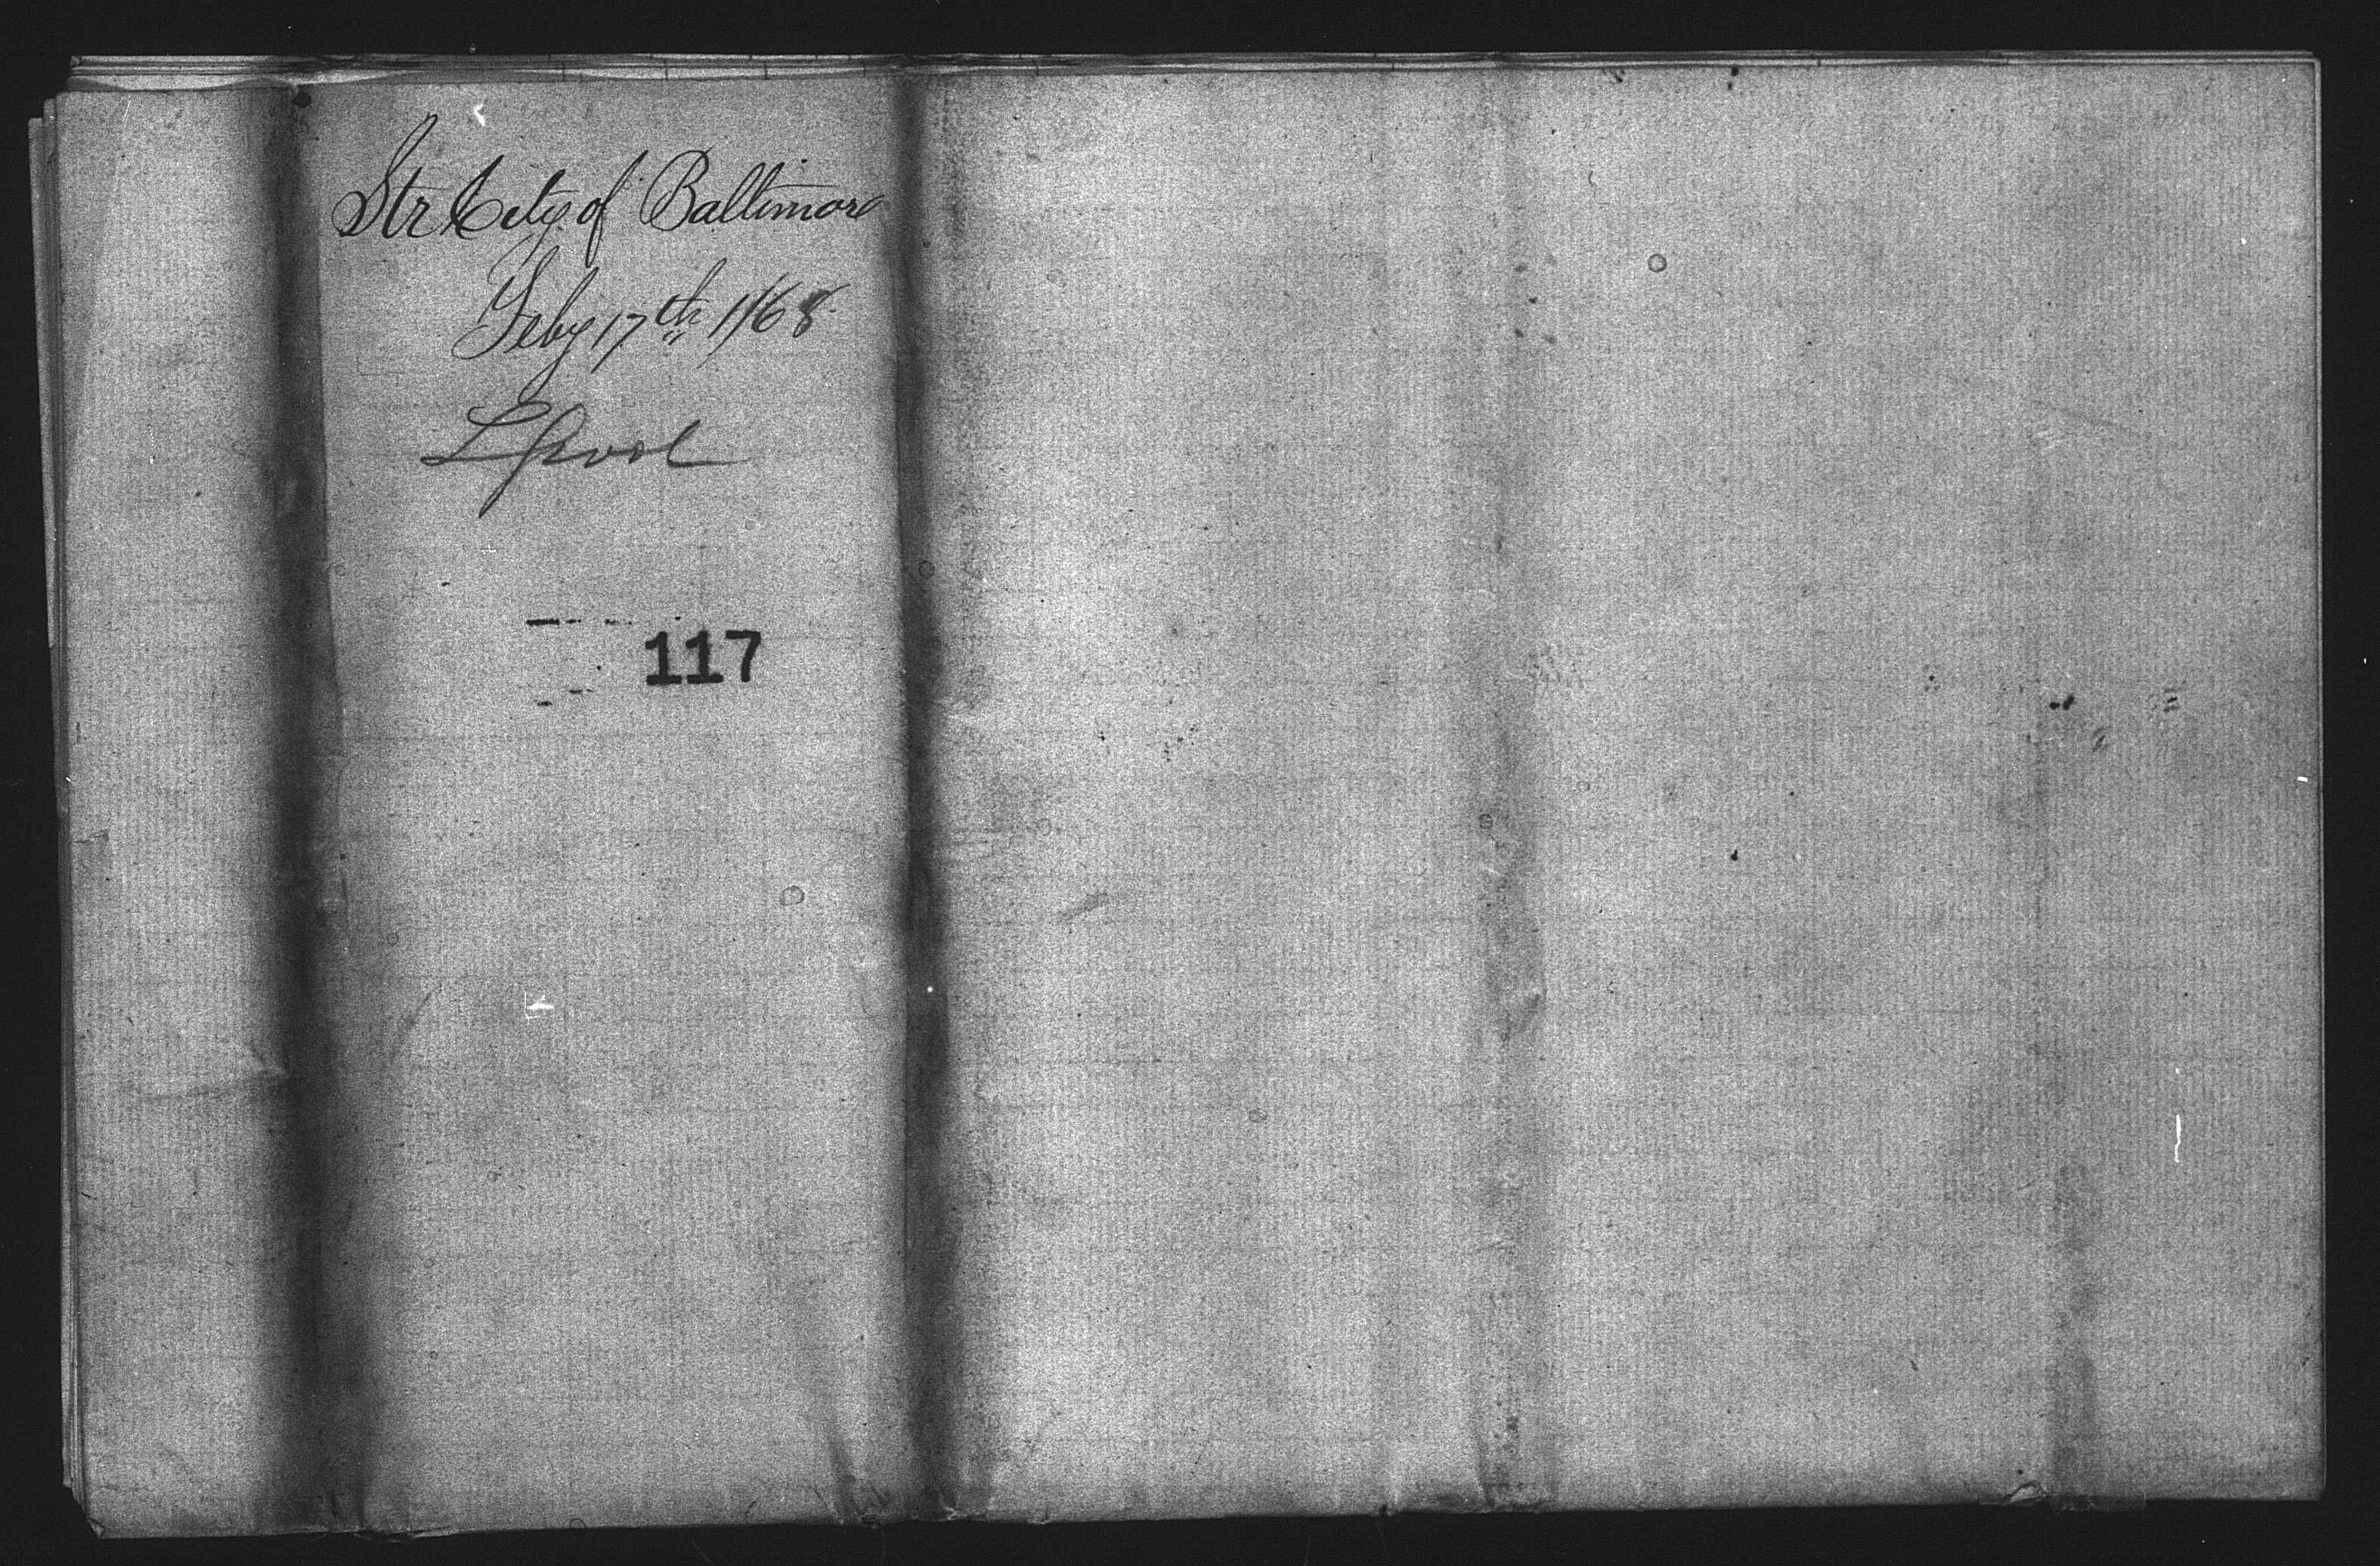 Str City of Baltimore
Feby 17th 1868
L'pool
117